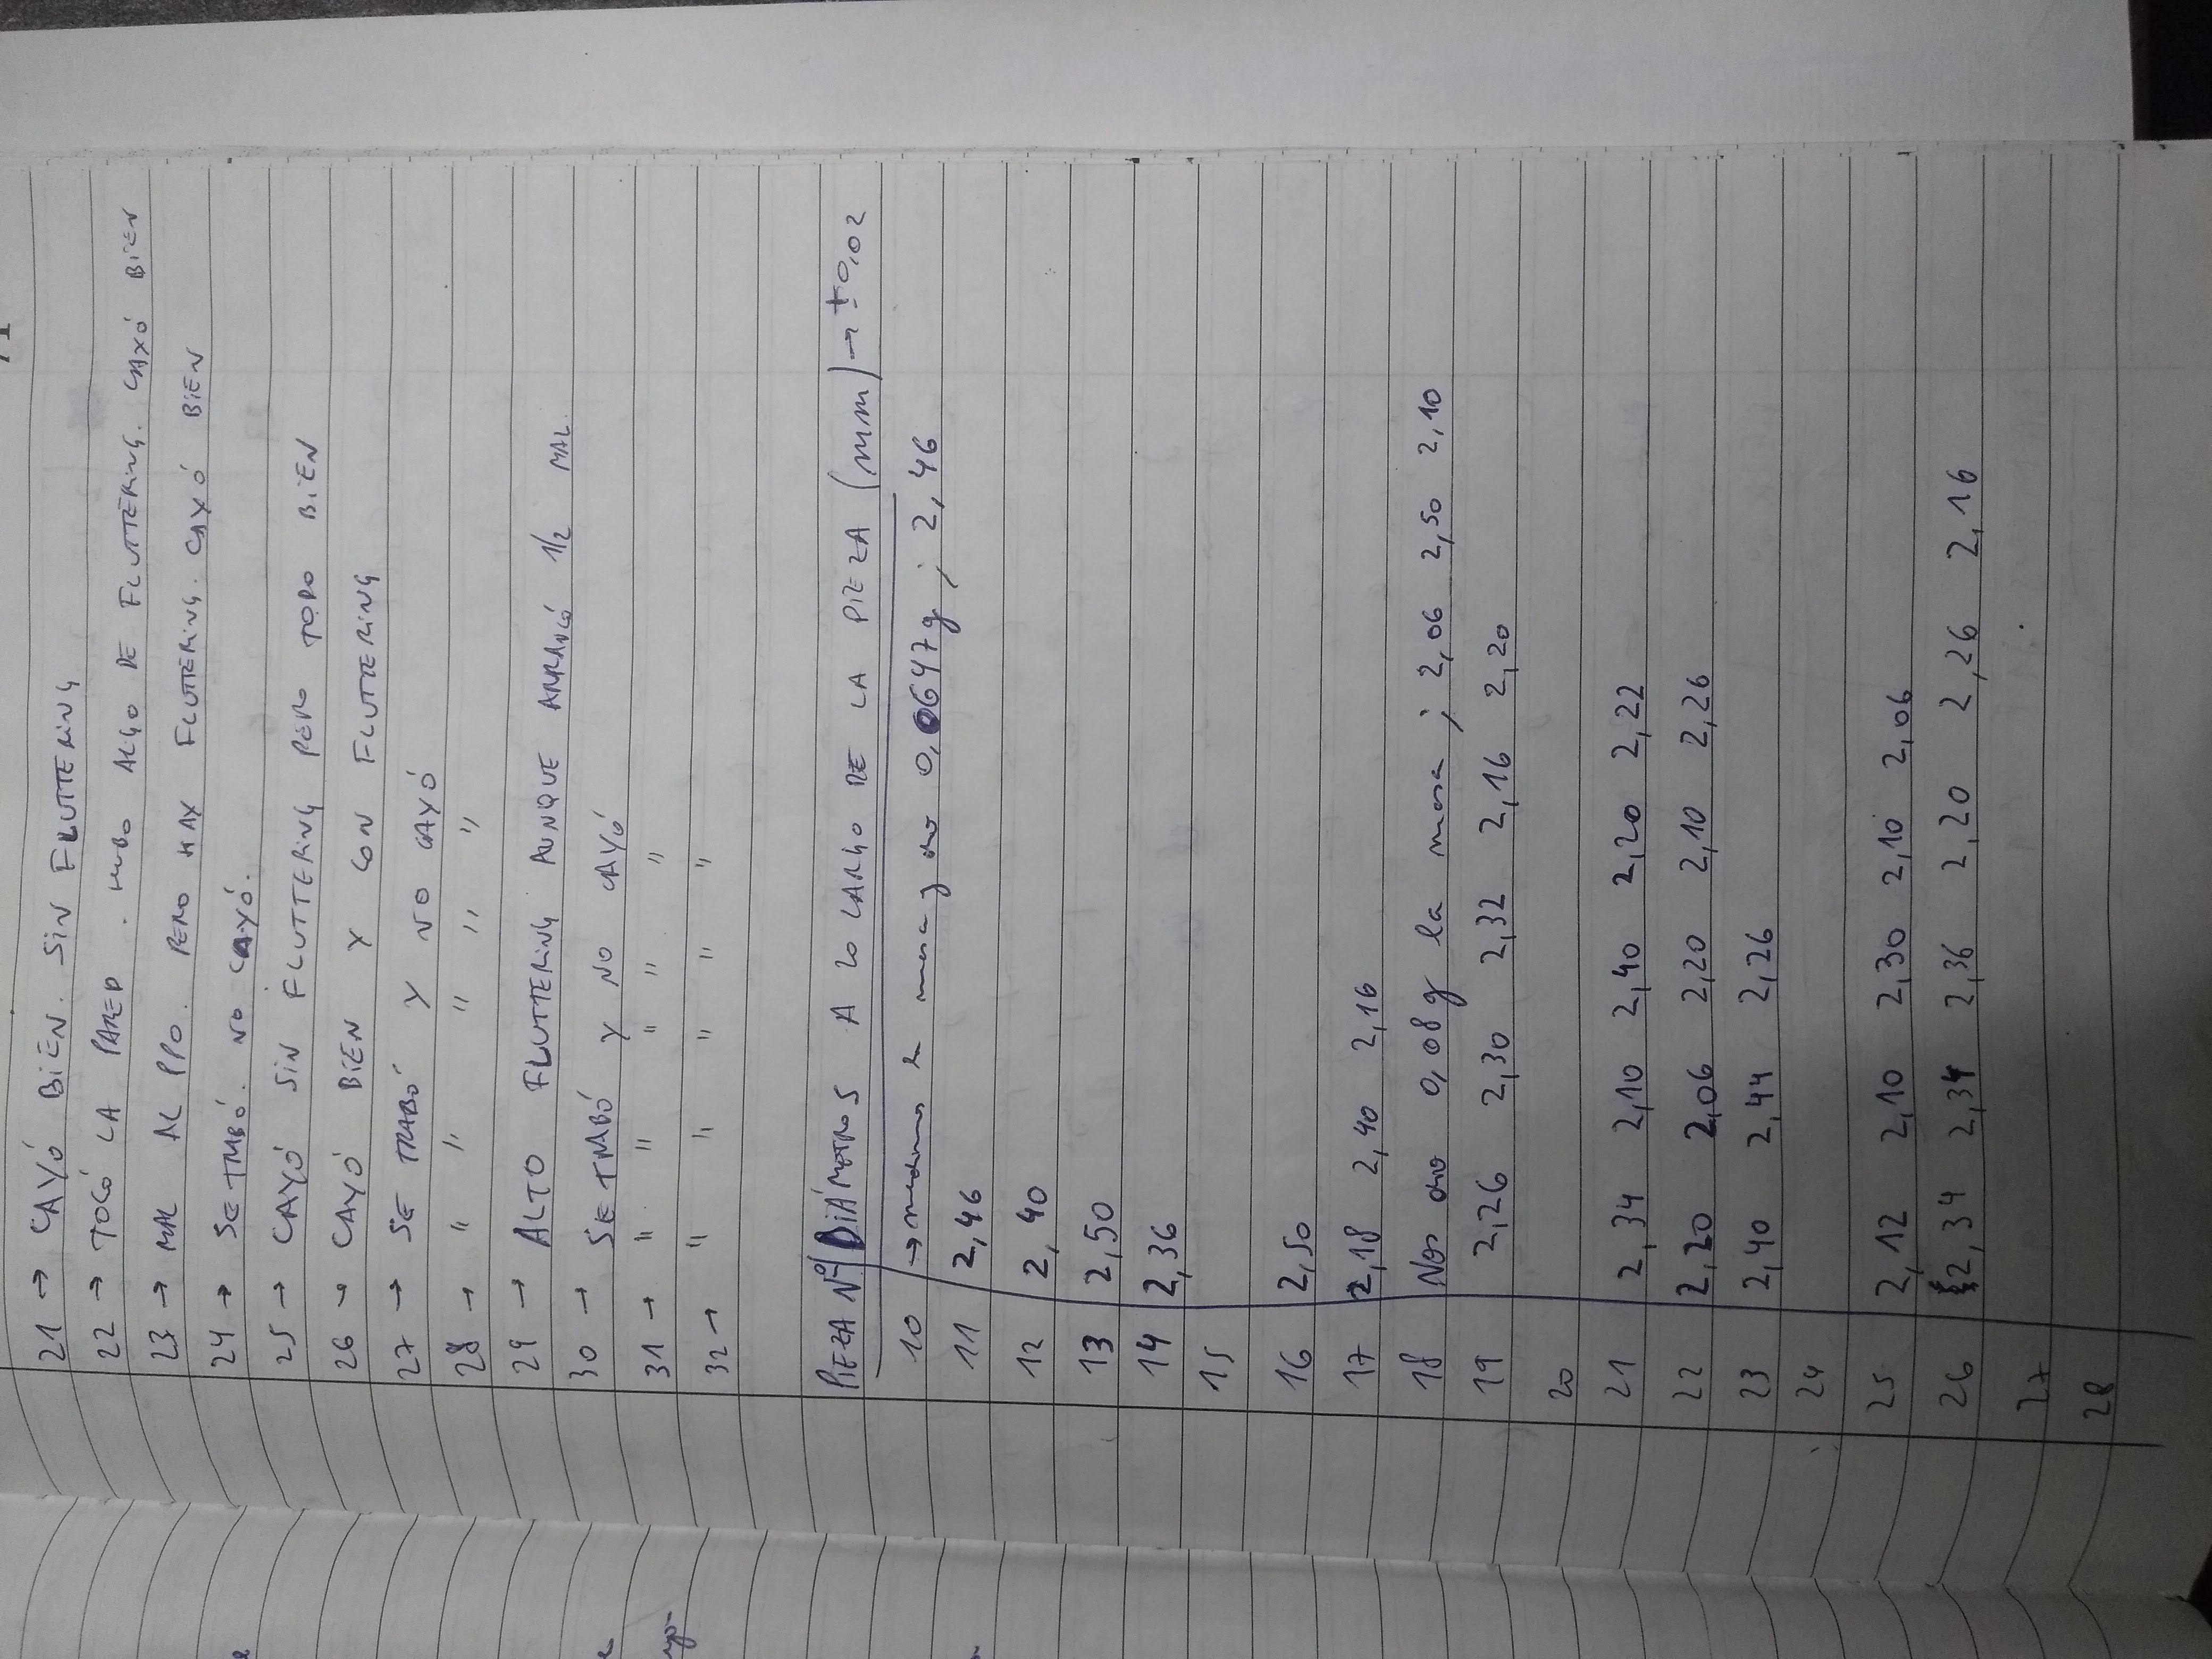 21 → CAYÓ BIEN. SIN FLUTTERING
22 → TOCÓ LA PARED. HUBO ALGO DE FLUTTERING. CAYÓ BIEN
23 → MAL AL PPO. PERO HAY FLUTTERING. CAYÓ BIEN
24 → SE TRABÓ. NO CAYÓ.
25 → CAYÓ SIN FLUTTERING PERO TODO BIEN
26 → CAYÓ BIEN Y CON FLUTTERING
27 → SE TRABÓ Y NO CAYÓ
28 → " " " " "
29 → ALTO FLUTTERING AUNQUE ARRANCÓ 1/2 MAL
30 → SE TRABÓ Y NO CAYÓ
31 → " " " " "
32 → " " " " "
PIEZA Nº DIÁMETROS A LO LARGO DE LA PIEZA (mm) → ±0,02
10 → medimos la masa y dio 0,0647g ; 2,46
11 2,46
12 2,40
13 2,50
14 2,36
15
16 2,50
17 2,18 2,40 2,16
18 Nos dio 0,08g la masa ; 2,06 2,50 2,10
19 2,26 2,30 2,32 2,16 2,20
20
21 2,34 2,10 2,40 2,20 2,22
22 2,20 2,06 2,20 2,10 2,26
23 2,40 2,44 2,26
24
25 2,12 2,10 2,30 2,10 2,06
26 2,34 2,34 2,36 2,20 2,26 2,16
27
28